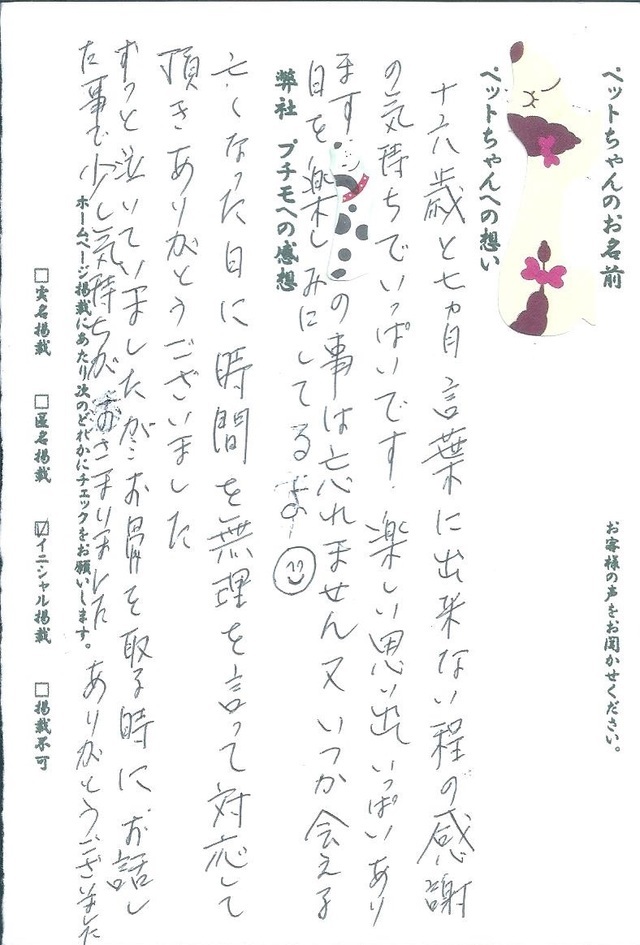 お客様の声をお聞かせください。
ペットちゃんのお名前
ペットちゃんへの想い
十六歳と七ヵ月言葉に出来ない程の感謝
の気持ちでいっぱいです。楽しい思い出いっぱいあり
ます の事は忘れません又いつか会える
日を楽しみにしてるよー
弊社 プチモへの感想
亡くなった日に時間を無理を言って対応して
頂きありがとうございました
ずっと泣いていましたがお骨を取る時にお話し
た事で少し気持ちがおさまりました ありがとうございました
ホームページ掲載にあたり次のどれかにチェックをお願いします。
□実名掲載 □匿名掲載 ☑イニシャル掲載 □掲載不可